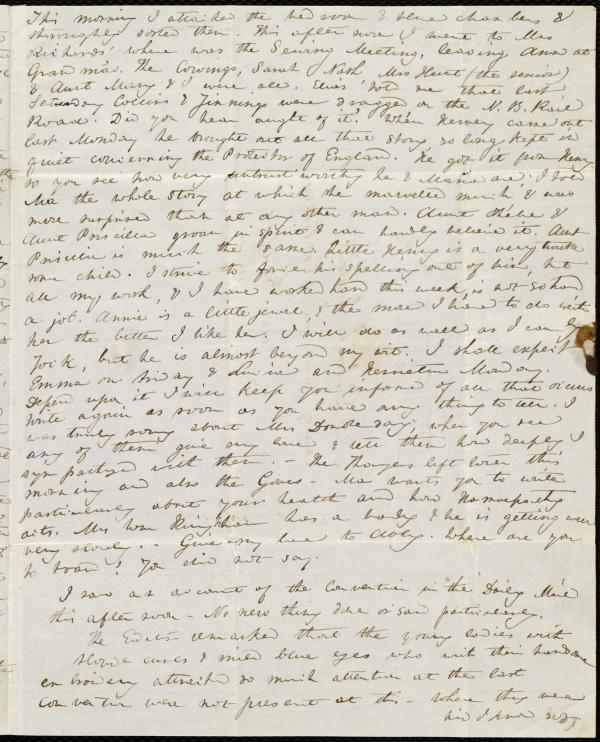 This morning I attacked the red room & blue chambers &
thoroughly sorted them. This after noon I went to Mrs
Richards' where was the Sewing Meeting, leaving Ann at
Grandma's. The Cowings, Sarah Nash Mrs Hunt (the senior)
& Aunt Mary & I were all. told me that last
Saturday Collins & Jennings were dragged on the N. B. Rail
Road. Did you hear aught of it? When Hervey came out
last Monday he brought out all that story so long kept in
quiet concerning the Protector of England. He got it from Henry
so you see how very untrustworthy he & Maria are. I told
Ma the whole story at which she marvelled much & was
more surprised than at any other man. Aunt Phebe &
Aunt Priscilla groan in spirit & can hardly believe it. Aunt
Priscilla is much the same. Little Henry is a very trouble
some child. I strive to his spelling out of him, but
all my work, & I have worked hard this week, is not so hard
a job. Annie is a little jewel, & the more I have to do with
her the better I like her. I will do as well as I can by
but he is almost beyond my art. I shall expect
Emma on Friday & and Monday.
Depend upon it I will keep you informed of all that occurs
Write again as soon as you have any thing to tell. I
was truly sorry about Mrs when you see
any of them give my love & tell them how deeply I
sympathized with them. - The Thayers left town this
morning and also the Goves - Ma wants you to write
particularly about your health and how Homoeopathy
acts. Mrs Wm has a baby & he is getting well
very slowly. - Give my love to Abby. Where are you
to board? You did not say.
I saw an account of the Convention in the Daily Mail
this after noon - No new thing done or said particularly.
The Editor remarked that the young ladies with
curls & mild blue eyes who with their handsome
embroidery attracted so much attention at the last
convention were not present at this - where they were
he I know not